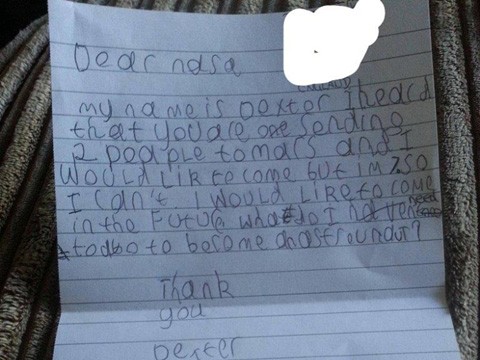 Dear nasa
my name is Dexter I heard
that you are sending
2 people to mars and I
would like to come but im 7. so
I can't I would like to come
in the future what do I need
to do to become an astronaut?
Thank
you
Dexter